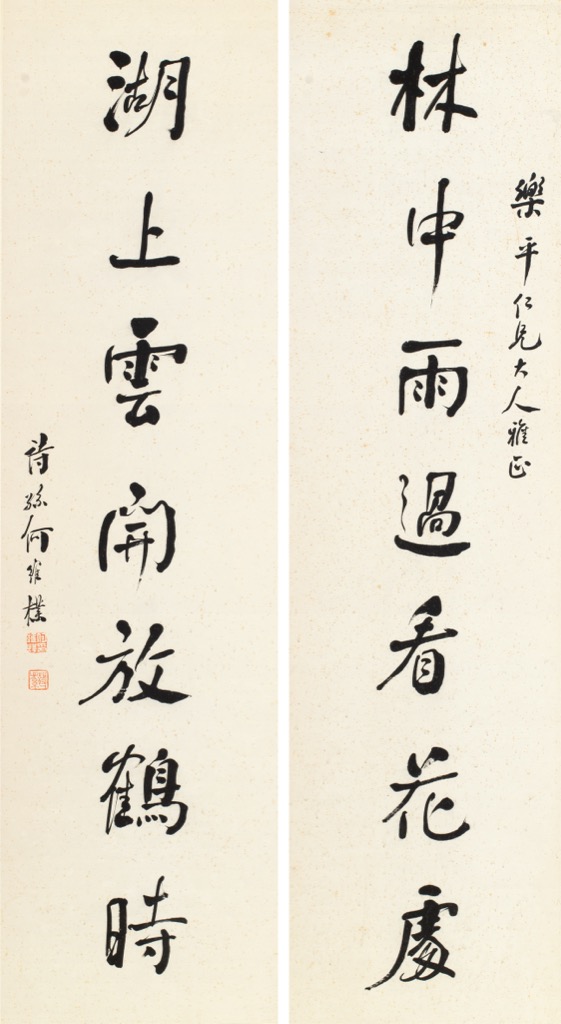 樂平仁兄大人雅正
林中雨過看花處
湖上雲開放鶴時
詩孫何維樸